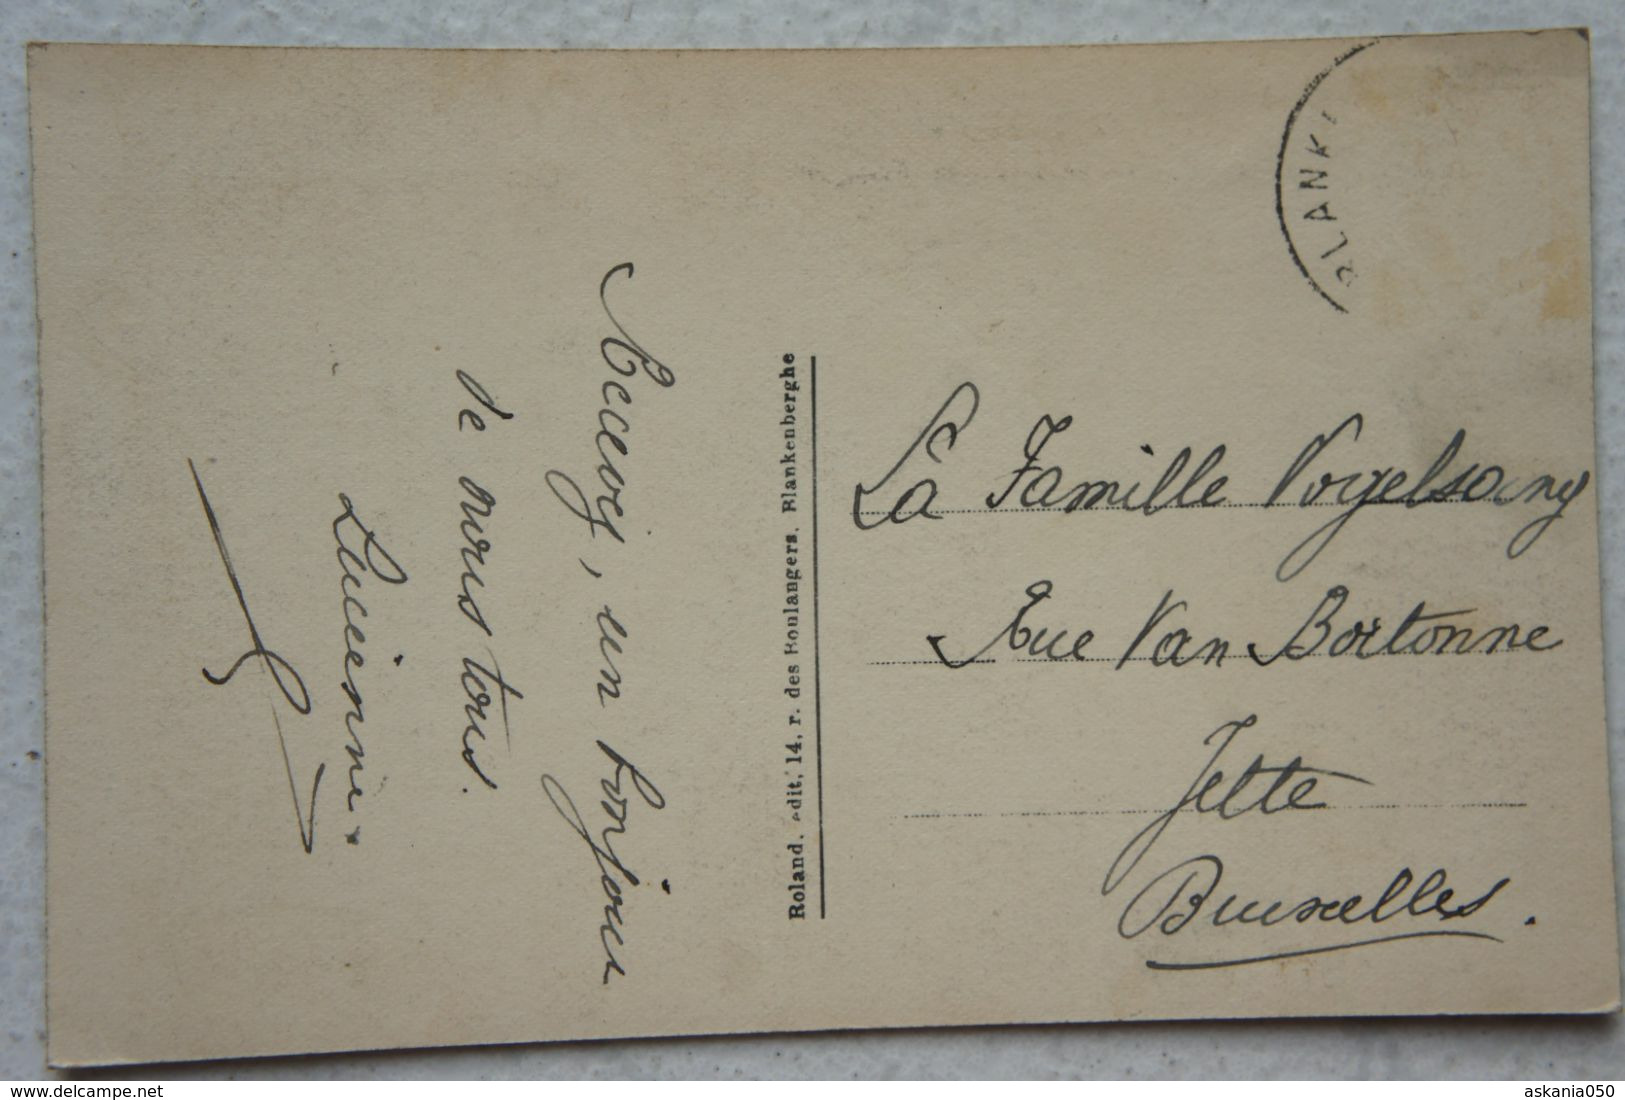 Recevez, un bonjour
de nous tous.
Lucienne.
Roland. édit, 14, r. des Boulangers. Blankenberghe
BLANK
La Famille Vogelsang
Rue Van Bortonne
Jette
Bruxelles.
delcampe.net
askania050